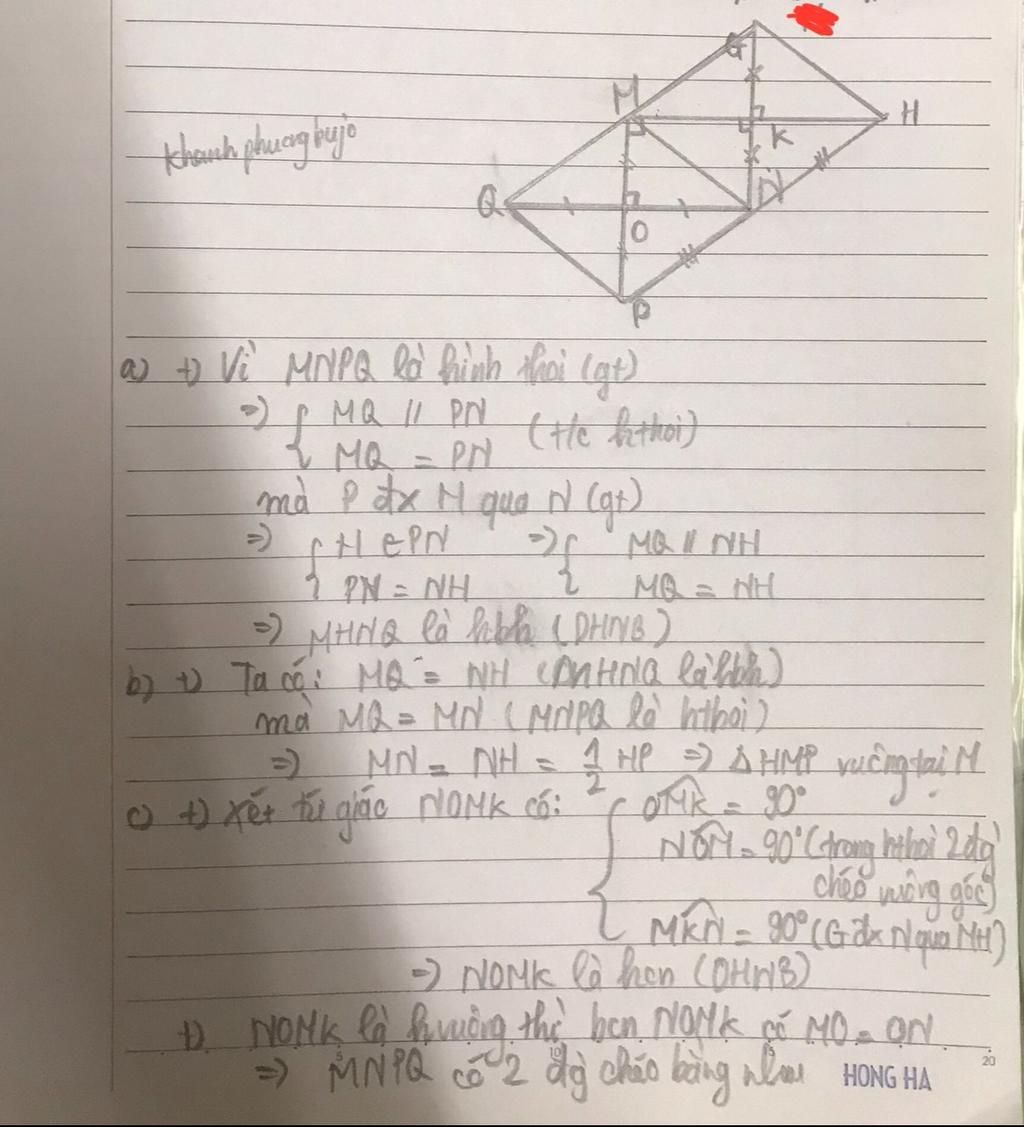 G
M
H
K
khanhphuongbujo
Q
N
O
P
a) +) Vì MNPQ là hình thoi (gt)
=> { MQ // PN
MQ = PN (t/c hthoi)
mà P đx H qua N (gt)
=> { H ∈ PN => { MQ // NH
PN = NH MQ = NH
=> MHNQ là hbh (DHNB)
b) +) Ta có: MQ = NH (MHNQ là hbh)
mà MQ = MN (MNPQ là hthoi)
=> MN = NH = 1/2 HP => Δ HMP vuông tại M
c) +) Xét tứ giác NOMK có: { OMK = 90°
NOM = 90° (trong hthoi 2 đg`
chéo vuông góc)
MKN = 90° (G đx N qua MH)
=> NOMK là hcn (DHNB)
+) NOMK là hvuông thì hcn NOMK có MO = ON
=> MNPQ có 2 đg` chéo bằng nhau
HONG HA
5 10 5 20